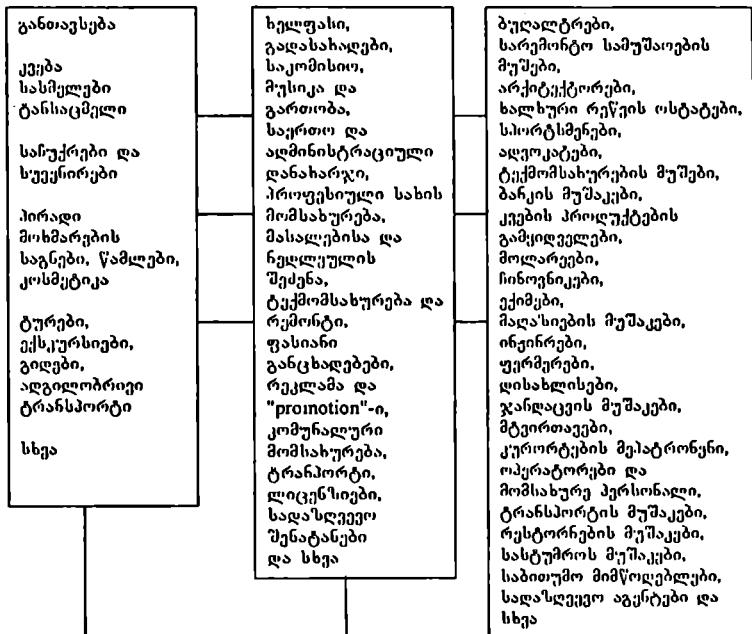 განთავსება
კვება
სასმელები
ტანსაცმელი
საჩუქრები და
სუვენირები
პირადი
მოხმარების
საგნები, წამლები,
კოსმეტიკა
ტურები,
ექსკურსიები,
გიდები,
ადგილობრივი
ტრანსპორტი
სხვა
ხელფასი,
გადასახადები,
საკომისიო,
მუსიკა და
გართობა,
საერთო და
ადმინისტრაციული
დანახარჯი,
პროფესიული სახის
მომსახურება,
მასალებისა და
ნედლეულის
შეძენა,
ტექმომსახურება და
რემონტი,
ფასიანი
განცხადებები,
რეკლამა და
"promotion"-ი,
კომუნალური
მომსახურება,
ტრანპორტი,
ლიცენზიები,
სადაზღვევო
შენატანები
და სხვა
ბუღალტრები,
სარემონტო სამუშაოების
მუშები,
არქიტექტორები,
ხალხური რეწვის ოსტატები,
სპორტსმენები,
ადვოკატები,
ტექმომსახურების მუშები,
ბანკის მუშაკები,
კვების პროდუქტების
გამყიდველები,
მოლარეები,
ჩინოვნიკები,
ექიმები,
მაღაზიების მუშაკები,
ინჟინრები,
ფერმერები,
დისახლისები,
ჯანდაცვის მუშაკები,
მტვირთავები,
კურორტების მეპატრონენი,
ოპერატორები და
მომსახურე პერსონალი,
ტრანსპორტის მუშაკები,
რესტორნების მუშაკები,
სასტუმროს მუშაკები,
საბითუმო მიმწოდებლები,
სადაზღვევო აგენტები და
სხვა